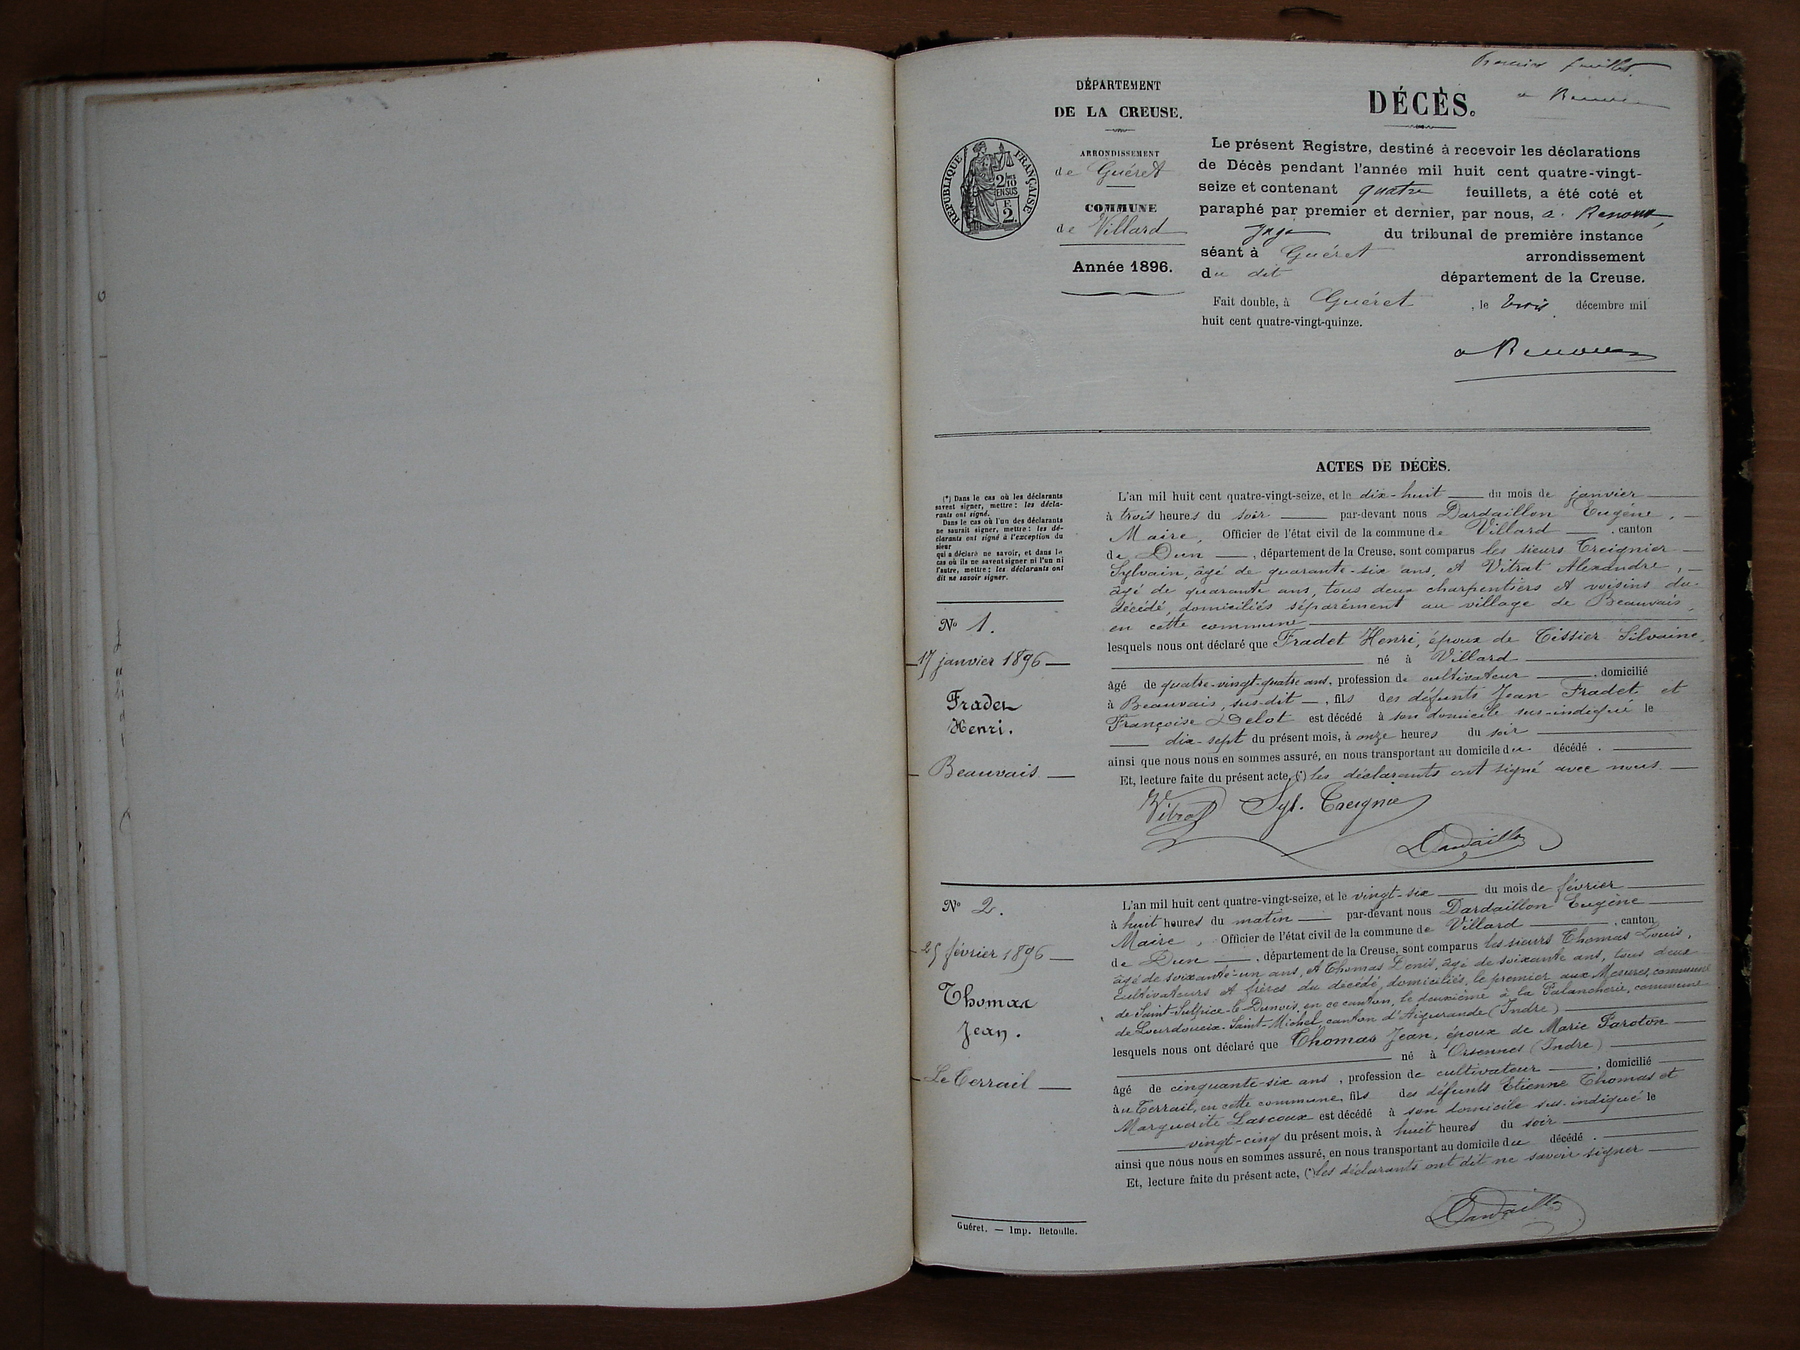 Premier feuillet.
a Renoux
DÉPARTEMENT
DE LA CREUSE.
ARRONDISSEMENT
de Guéret
COMMUNE
de Villard
Année 1896.
RÉPUBLIQUE FRANÇAISE
2/10
EN SUS
2
DÉCÈS.
Le présent Registre, destiné à recevoir les déclarations
de Décès pendant l'année mil huit cent quatre-vingt-
seize et contenant quatre feuillets, a été coté et
paraphé par premier et dernier, par nous, a. Renoux,
juge du tribunal de première instance
séant à Guéret arrondissement
du dit département de la Creuse.
Fait double, à Guéret, le trois décembre mil
huit cent quatre-vingt-quinze.
a Renoux
ACTES DE DÉCÈS.
(*) Dans le cas où les déclarants
savent signer, mettre : les décla-
rants ont signé.
Dans le cas où l'un des déclarants
ne saurait signer, mettre : les dé-
clarants ont signé à l'exception du
sieur
qui a déclaré ne savoir, et dans le
cas où ils ne savent signer ni l'un ni
l'autre, mettre : les déclarants ont
dit ne savoir signer.
N° 1.
17 janvier 1896
Fradet
Henri.
Beauvais
L'an mil huit cent quatre-vingt-seize, et le dix-huit du mois de janvier
à trois heures du soir par-devant nous Dardaillon Eugène,
Maire, Officier de l'état civil de la commune de Villard, canton
de Dun, département de la Creuse, sont comparus les sieurs Treignier
Sylvain, âgé de quarante-six ans, et Vitrat Alexandre,
âgé de quarante ans, tous deux charpentiers et voisins du
décédé, domiciliés séparément au village de Beauvais,
en cette commune
lesquels nous ont déclaré que Fradet Henri, époux de Tissier Silvaine,
né à Villard
âgé de quatre-vingt-quatre ans, profession de cultivateur, domicilié
à Beauvais, sus-dit, fils des défunts Jean Fradet et
Françoise Delot est décédé à son domicile sus-indiqué le
dix-sept du présent mois, à onze heures du soir
ainsi que nous nous en sommes assuré, en nous transportant au domicile du décédé.
Et, lecture faite du présent acte, (*) les déclarants ont signé avec nous.
Vitrat Syl. Treignier
Dardaillon
N° 2.
25 février 1896
Thomas
Jean.
Le Terrail
L'an mil huit cent quatre-vingt-seize, et le vingt-six du mois de février
à huit heures du matin par-devant nous Dardaillon Eugène
Maire, Officier de l'état civil de la commune de Villard, canton
de Dun, département de la Creuse, sont comparus les sieurs Thomas Louis,
âgé de soixante-un ans, et Thomas Denis, âgé de soixante ans, tous deux
cultivateurs et frères du décédé, domiciliés, le premier aux Mesures, commune
de Saint-Sulpice-le-Dunois, en ce canton, le deuxième à la Palancherie, commune
de Lourdoueix-Saint-Michel, canton d'Aigurande (Indre)
lesquels nous ont déclaré que Thomas Jean, époux de Marie Paroton
né à Orsennes (Indre)
âgé de cinquante-six ans, profession de cultivateur, domicilié
au Terrail, en cette commune, fils des défunts Etienne Thomas et
Marguerite Lascoux est décédé à son domicile sus-indiqué le
vingt-cinq du présent mois, à huit heures du soir
ainsi que nous nous en sommes assuré, en nous transportant au domicile du décédé.
Et, lecture faite du présent acte, (*) les déclarants ont dit ne savoir signer
Dardaillon
Guéret. — Imp. Betoulle.